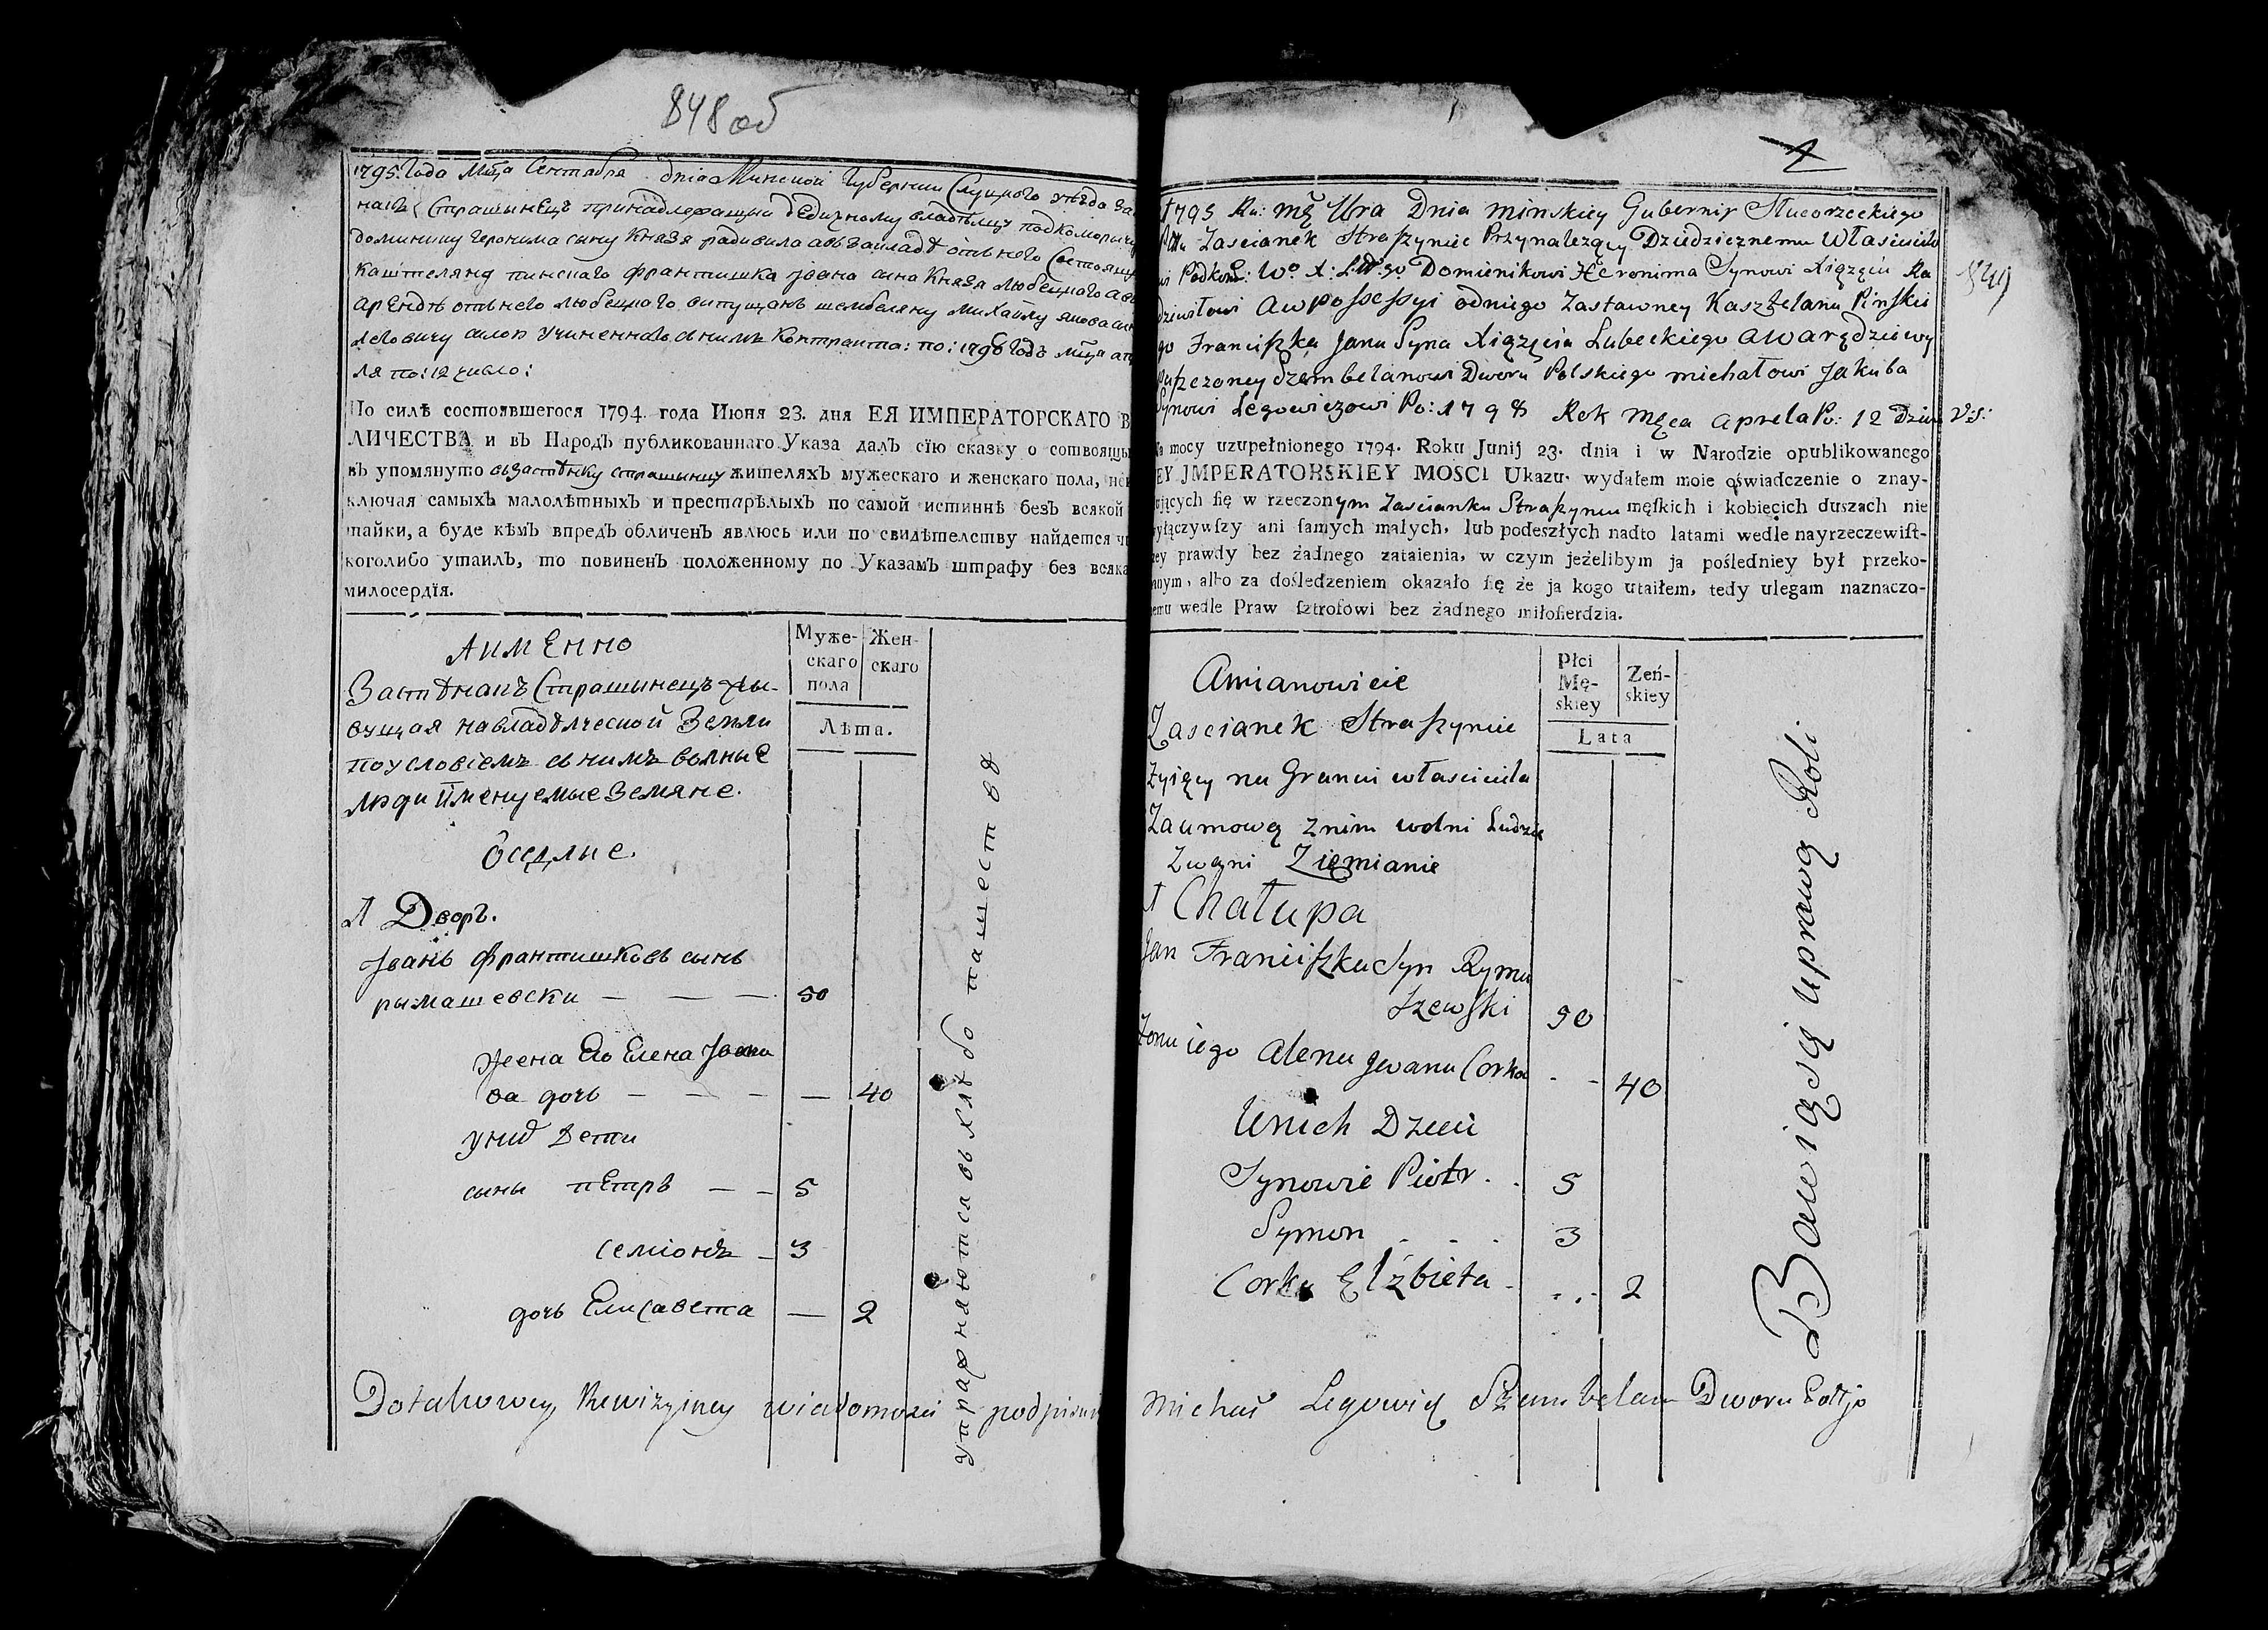 848 об
1795. Года Мца Сентября дnia Минской Губернии Слуцкого уѣзда За
нокъ Страшынецъ принадлежащый дедичному владѣлцу подкоморыему
доминику Геронима сыну Князя радивила авъ закладѣ отъ него Состоящы
Каштеляна пинскаго франтишка Iоана сына Князя Любецкого авъ
арендѣ отъ него любецкого випущонъ шембеляну Михайлу якова сину
леговичу силоп учиненналь снимъ контракта: по: 1798 Годъ Мца апре
ля по: 12 число:
По силѣ состоявшегося 1794. года Июня 23. дня ЕЯ ИМПЕРАТОРСКАГО В
ЛИЧЕСТВА и въ Народъ публикованнаго Указа далъ сїю сказку о сотвоящы
въ упомянуто въ застѣнку страшынцу жителяхъ мужескаго и женскаго пола, не
ключая самыхъ малолѣтныхъ и престарѣлыхъ по самой истиннѣ безъ всякой
тайки, а буде кѣмъ впредъ обличенъ явлюсь или по свидѣтелству найдется ч
коголибо утаилъ, то повиненъ положенному по Указамъ штрафу без всяка
милосердїя.
Аименно
Муже-
скаго
пола
Жен-
скаго
Лѣта.
Застѣнакъ Страшынецъ жы-
вущая навладѣлческой Земли
поусловiемъ снимъ волные
люди именуемые Земяне.
Оседлые.
1 Дворъ.
Iванъ франтишковъ сынъ
рымашевски — — — 50
жена Его Елена Iвана
ва дочь — — — — 40
унид Дети
сыны пЕтръ — — 5
семiонъ — 3
дочь Елисавета — 2
упражняются въ хлѣбо пашествѣ
Dotakowey Rewizyiney wiadomosci podpisuię
1
849
1795 Ru: Mę Ura Dnia Minskiey Gubernij Slucorzeckiego
Pttu Zascianek Straszyniec Przynalezący Dziedzicznemu Włascicielo
wi Podkom: Wo X: Litt:go Domienikowi Heronima Synowi Xiązęciu Ra
dziwiłowi Awpossessyi odniego Zastawney Kasztelanu Pinskie
go Franciszka Jana Syna Xiązęcia Lubeckiego awarędzie wy
puszczoney Szambelanowi Dworu Polskiego Michałowi Jakuba
Synowi Legowiczowi Po: 1798 Rok Męca aprela Po: 12 Dzien V:S:
Na mocy uzupełnionego 1794. Roku Junij 23. dnia i w Narodzie opublikowanego
EY JMPERATORSKIEY MOSCI Ukazu, wydałem moie oświadczenie o znay-
dujących się w rzeczonym Zascianku Straszyncu męſkich i kobięcich duszach nie
wyłączywſzy ani ſamych małych, lub podeszłych nadto latami wedle nayrzeczewiſt-
szey prawdy bez żadnego zataienia, w czym jeżelibym ja pośledniey był przeko-
nanym, albo za dośledzeniem okazało ſię że ja kogo utaiłem, tedy ulegam naznaczo-
nemu wedle Praw ſztrofowi bez żadnego miłoſierdzia.
Amianowicie
Płci
Mę-
skiey
Zeń-
skiey
Lata
Zascianek Straszyniec
Zyiący na Grunci własciciela
Zaumową znim wolni Ludzie
Zwani Ziemianie
1 Chałupa
Jan Franciszka Syn Ryma
szewski 50
Zona iego Alena Jwana Corka - - 40
Unich Dzieci
Synowie Piotr . . 5
Symon . . . 3
Corka Elżbieta - . . . 2
Bawią się uprawą Roli
Michał Legowicz Szambelan Dworu Polgo